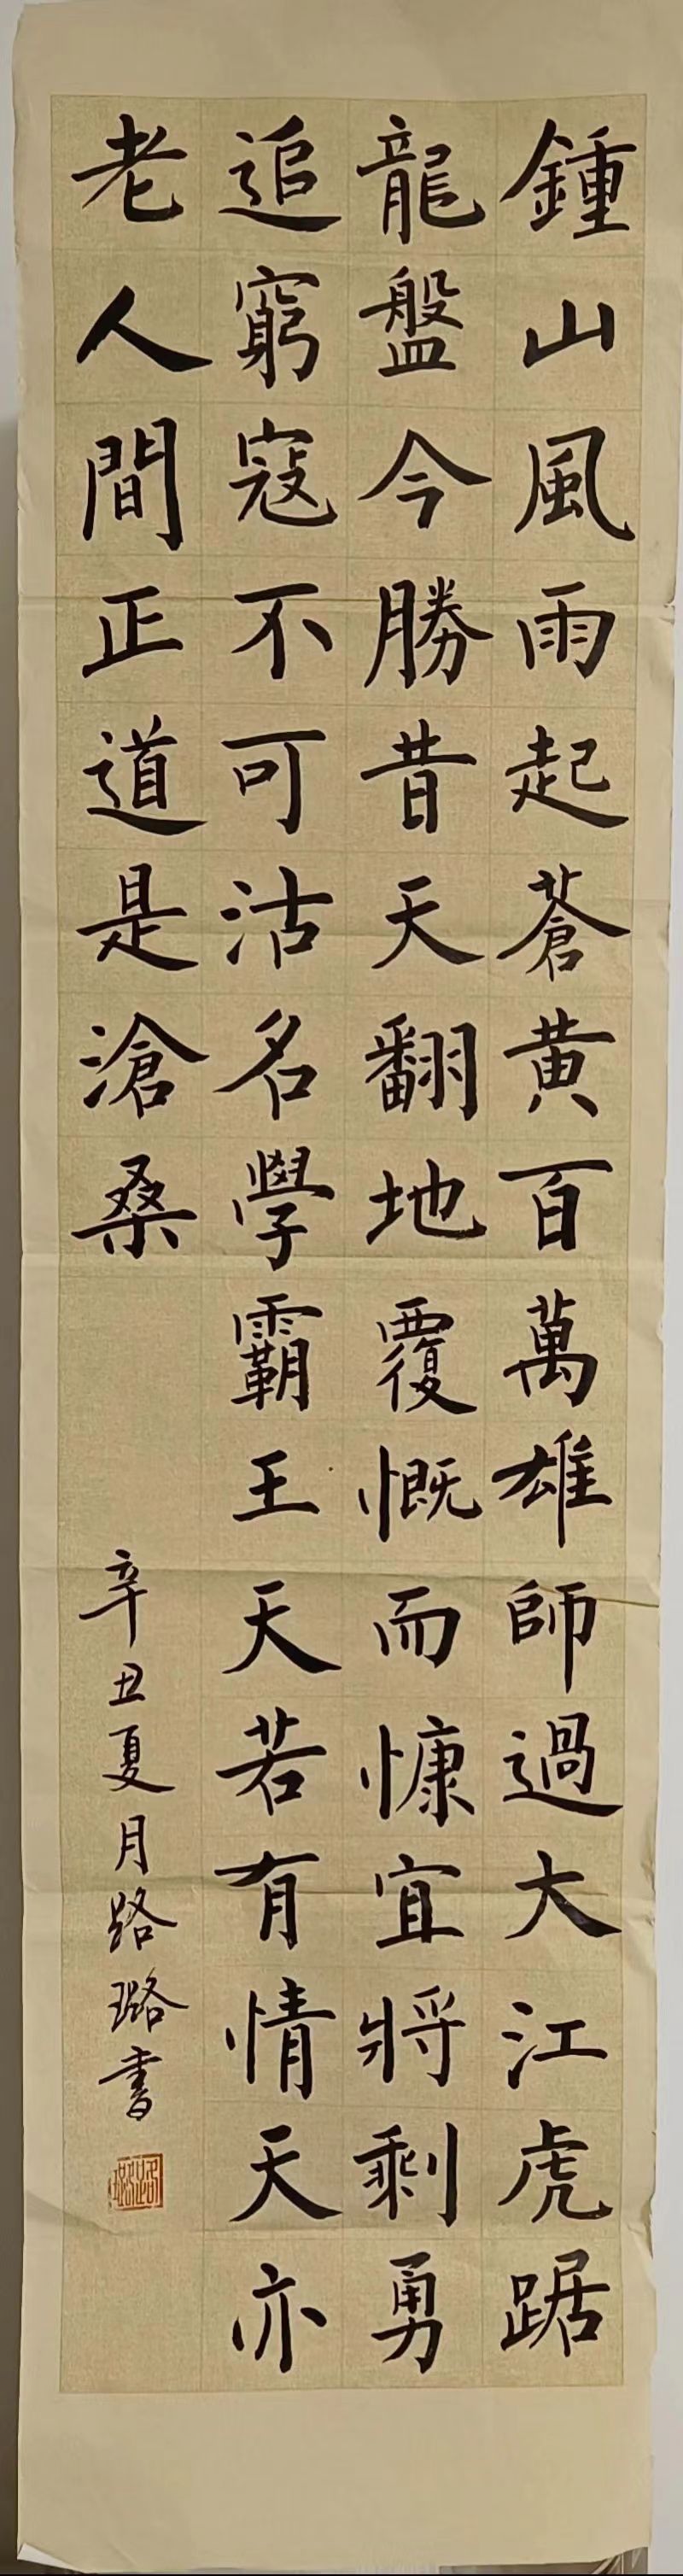 鍾山風雨起蒼黄百萬雄師過大江虎踞
龍盤今勝昔天翻地覆慨而慷宜將剩勇
追窮寇不可沽名學霸王天若有情天亦
老人間正道是滄桑
辛丑夏月路璐書
路璐